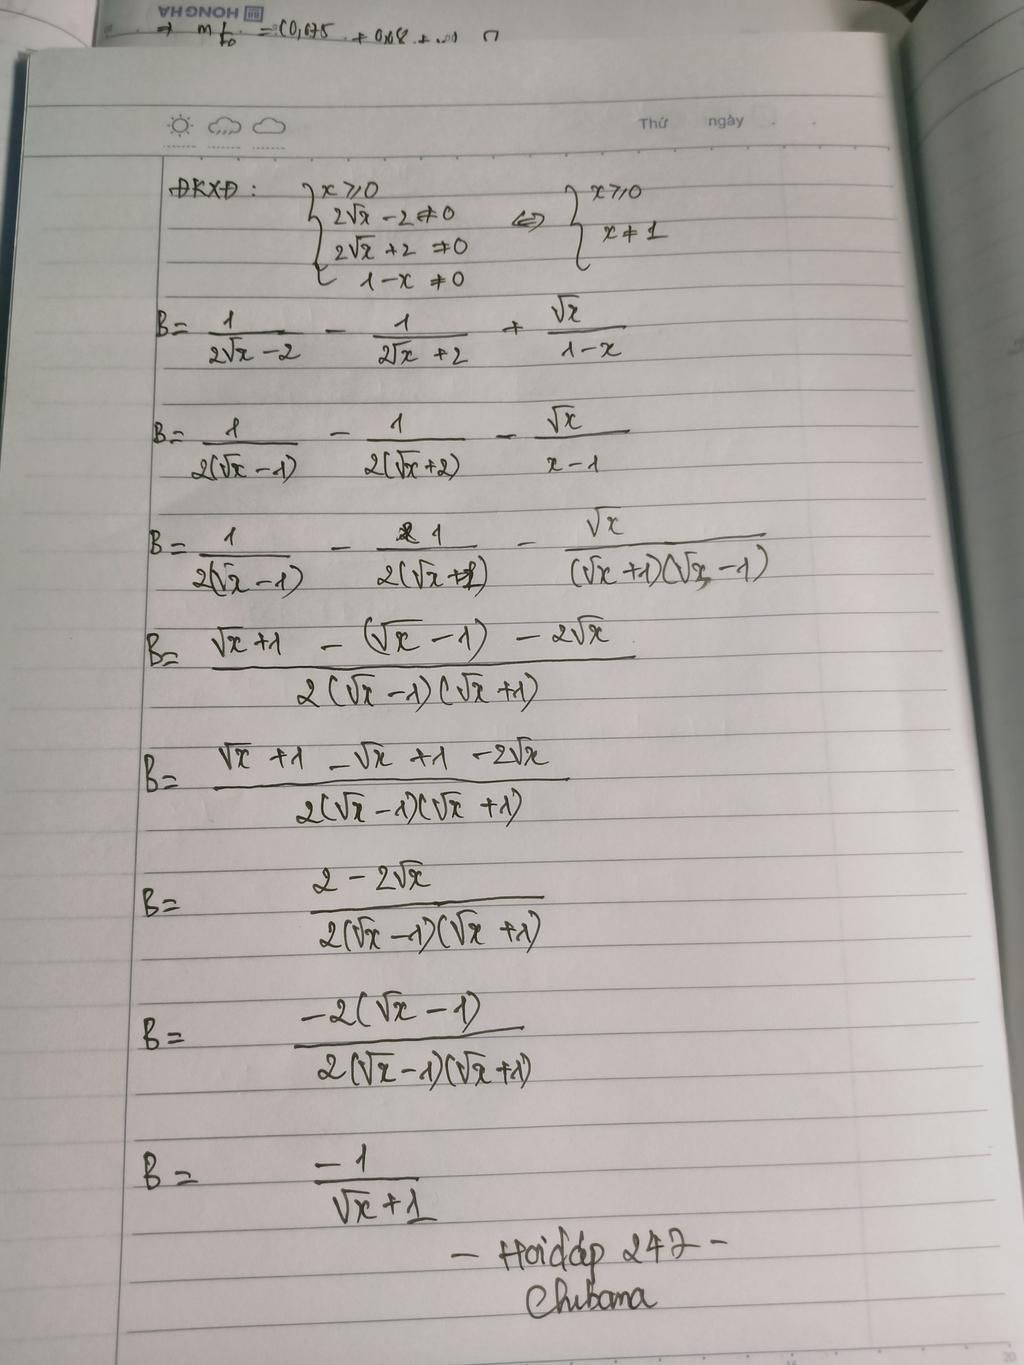 HONG HA
Thứ ngày
ĐKXĐ : { x ⩾ 0 ; 2√x - 2 ≠ 0 ; 2√x + 2 ≠ 0 ; 1 - x ≠ 0 ⇔ { x ⩾ 0 ; x ≠ 1
B = 1/(2√x - 2) - 1/(2√x + 2) + √x/(1 - x)
B = 1/(2(√x - 1)) - 1/(2(√x + 2)) - √x/(x - 1)
B = 1/(2(√x - 1)) - 1/(2(√x + 1)) - √x/((√x + 1)(√x - 1))
B = (√x + 1 - (√x - 1) - 2√x)/(2(√x - 1)(√x + 1))
B = (√x + 1 - √x + 1 - 2√x)/(2(√x - 1)(√x + 1))
B = (2 - 2√x)/(2(√x - 1)(√x + 1))
B = (-2(√x - 1))/(2(√x - 1)(√x + 1))
B = -1/(√x + 1)
- Hoidap 247 -